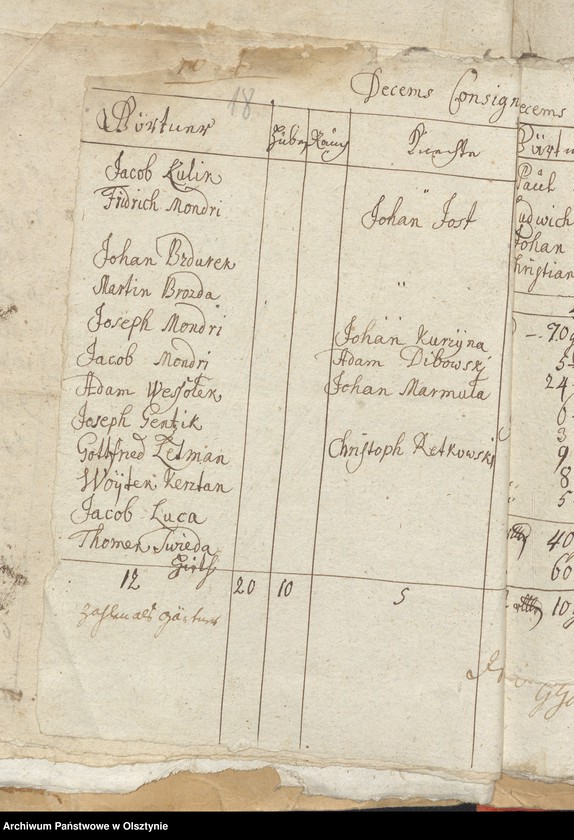 18
Decems Consign
Gärtner Hube Kauf Knechte
Jacob Kulin
Fridrich Mondri Johan Jost
Johan Bzdurek
Martin Brozda "
Joseph Mondri Johan Kurzyna
Jacob Mondri Adam Dibowskj
Adam Wessolek Johan Marmula
Joseph Gentzik
Gottfried Zelman Christoph Retkowski
Woÿtek Kerztan
Jacob Luca
Thomek Twieda
Hirth
12 20 10 5
Zahlen als Gärtner
ecems
Gärtn
Paul
Ludwich
Johan
Christian
70
5
24
6
3
9
8
5
40
60
10
Archiwum Państwowe w Olsztynie